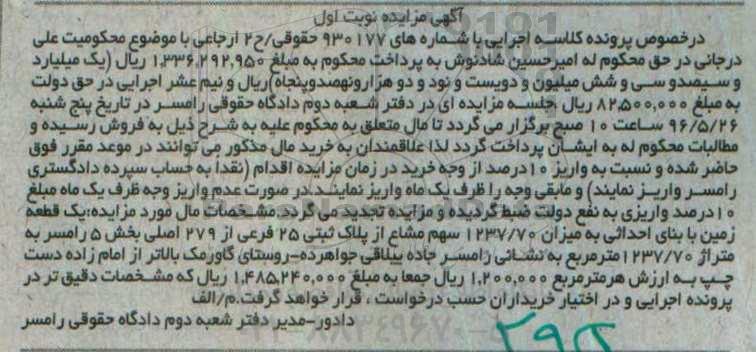 آگهی مزایده نوبت اول
درخصوص پرونده کلاسه اجرایی با شماره های ۹۳۰۱۷۷ حقوقی/ح۲ ارجاعی با موضوع محکومیت علی
درجانی در حق محکوم له امیرحسین شادنوش به پرداخت محکوم به مبلغ ۱,۳۳۶,۲۹۲,۹۵۰ ریال (یک میلیارد
و سیصدو سی و شش میلیون و دویست و نود و دو هزارونهصدوپنجاه)ریال و نیم عشر اجرایی در حق دولت
به مبلغ ۸۲,۵۰۰,۰۰۰ ریال ،جلسه مزایده ای در دفتر شعبه دوم دادگاه حقوقی رامسر در تاریخ پنج شنبه
۹۶/۵/۲۶ ساعت ۱۰ صبح برگزار می گردد تا مال متعلق به محکوم علیه به شرح ذیل به فروش رسیده و
مطالبات محکوم له به ایشان پرداخت گردد لذا علاقمندان به خرید مال مذکور می توانند در موعد مقرر فوق
حاضر شده و نسبت به واریز ۱۰درصد از وجه خرید در زمان مزایده اقدام (نقدا به حساب سپرده دادگستری
رامسر واریز نمایند) و مابقی وجه را ظرف یک ماه واریز نمایند.در صورت عدم واریز وجه ظرف یک ماه مبلغ
۱۰درصد واریزی به نفع دولت ضبط گردیده و مزایده تجدید می گردد.مشخصات مال مورد مزایده:یک قطعه
زمین با بنای احداثی به میزان ۱۲۳۷/۷۰ سهم مشاع از پلاک ثبتی ۲۵ فرعی از ۲۷۹ اصلی بخش ۵ رامسر به
متراژ ۱۲۳۷/۷۰مترمربع به نشانی رامسر جاده ییلاقی جواهرده-روستای گاورمک بالاتر از امام زاده دست
چپ به ارزش هرمترمربع ۱,۲۰۰,۰۰۰ ریال جمعا به مبلغ ۱,۴۸۵,۲۴۰,۰۰۰ ریال که مشخصات دقیق تر در
پرونده اجرایی و در اختیار خریداران حسب درخواست ، قرار خواهد گرفت.م/الف
دادور-مدیر دفتر شعبه دوم دادگاه حقوقی رامسر